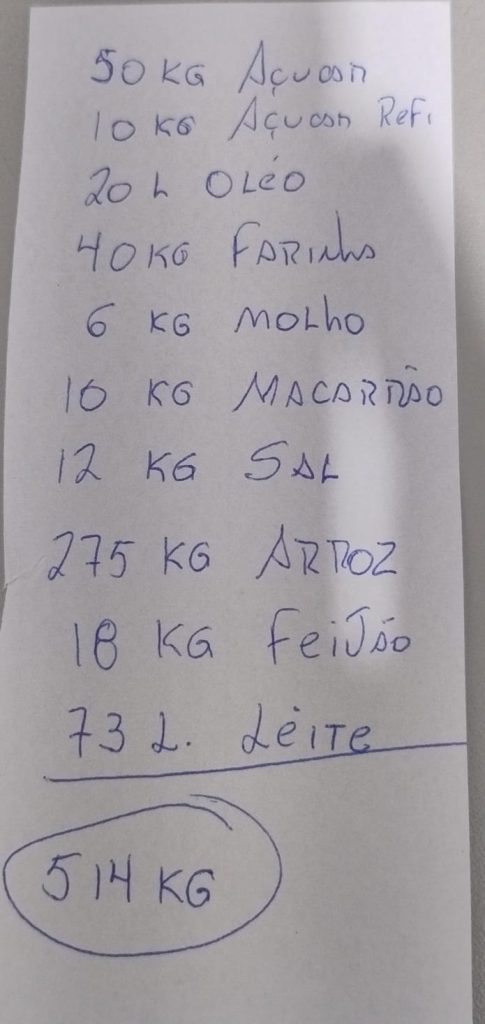 50 KG Açucar
10 KG Açucar Refi
20 L OLéO
40 KG FARINha
6 KG MOLhO
10 KG MACARRÃO
12 KG SAL
275 KG ARROZ
18 KG FeiJão
73 L. LèITe
514 KG